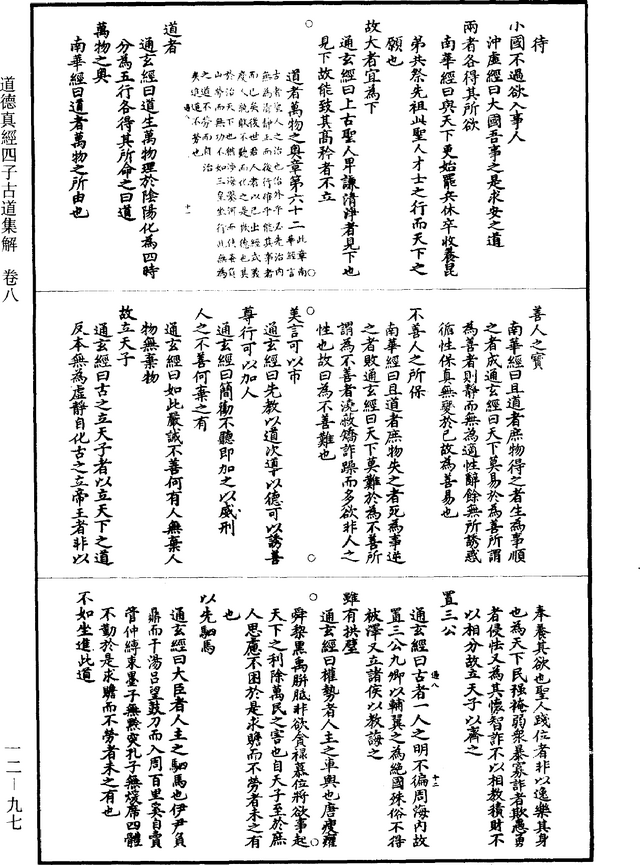 待
小國不過欲入事人
沖虛經曰大國吾事之是求安之道
兩者各得其所欲
南華經曰與天下更始罷兵休卒收養昆
弟共祭先祖此聖人才士之行而天下之
願也
故大者宜為下
通玄經曰上古聖人卑謙清淨者見下也
見下故能致其高矜者不立
道者萬物之奧章第六十二
道者
通玄經曰道生萬物理於陰陽化為四時
分為五行各得其所命之曰道
萬物之奧
南華經曰道者萬物之所由也
道德真經四子古道集解 卷八
善人之寶
南華經曰且道者庶物得之者生為事順
之者成通玄經曰天下莫易於為善所謂
為善者則靜而無為適性辭餘無所誘惑
循性保真無變於己故為善易也
不善人之所保
南華經曰且道者庶物失之者死為事逆
之者敗通玄經曰天下莫難於為不善所
謂為不善者澆散矯詐躁而多欲非人之
性也故曰為不善難也
美言可以市
通玄經曰先教以道次導以德可以誘善
尊行可以加人
通玄經曰簡衛不聽即加之以威刑
人之不善何棄之有
通玄經曰如此嚴誡不善何有人無棄人
物無棄物
故立天子
通玄經曰古之立天子者以立天下之道
反本無為虛靜自化古之立帝王者非以
奉養其欲也聖人踐位者非以逸樂其身
也為天下民強掩弱眾暴寡詐者欺愚勇
者侵怯又為其懷智詐不以相教積財不
以相分故立天子以齊之
置三公
通玄經曰古者一人之明不徧周海內故
置三公九卿以輔翼之為絕國殊俗不得
被澤又立諸侯以教誨之
雖有拱璧
通玄經曰權勢者人主之車輿也唐瘦瘽
舜黎黑禹胼胝非欲貪祿慕位將欲事起
天下之利除萬民之害也自天子至於庶
人思慮不困於是求贍而不勞者未之有
也
以先駟馬
通玄經曰大臣者人主之駟馬也伊尹負
鼎而干湯呂望鼓刀而入周百里奚自賣
管仲縛束墨子無黔突孔子無煖席四體
不勤於是求贍而不勞者未之有也
不如坐進此道
一二—九七